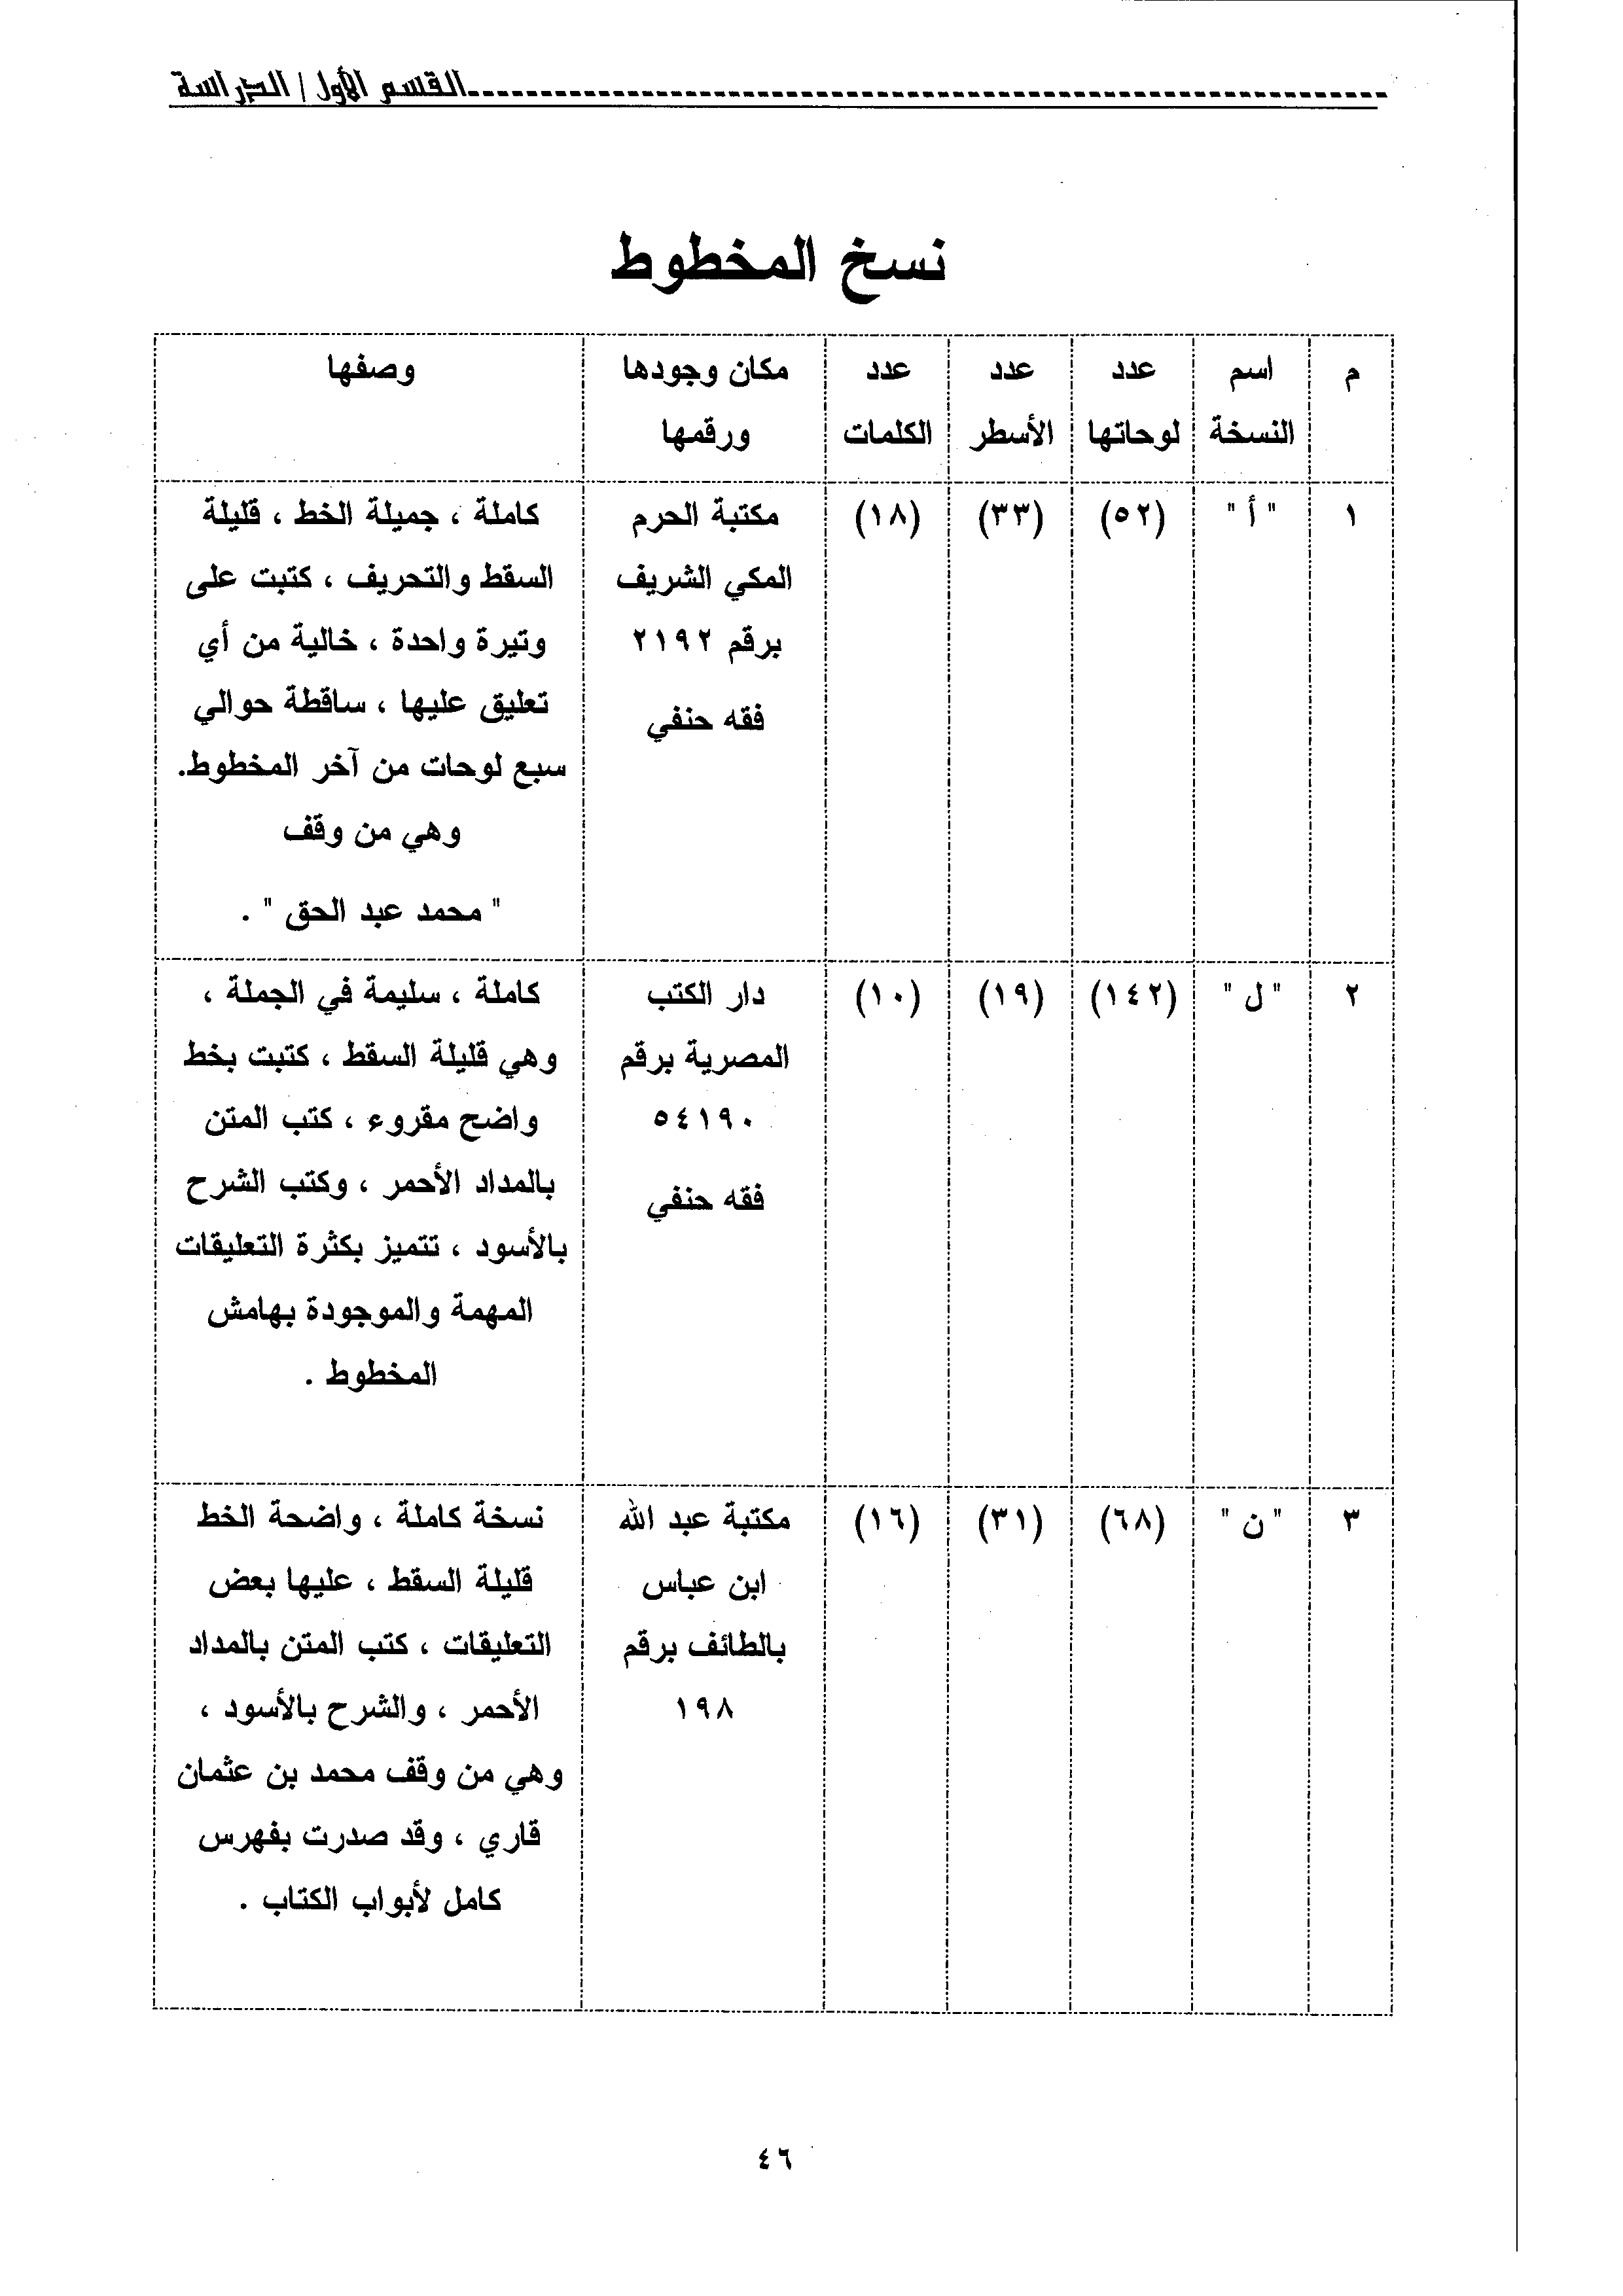 القسم الأول / الدراسة
نسخ المخطوط
م
اسم
النسخة
عدد
لوحاتها
عدد
الأسطر
عدد
الكلمات
مكان وجودها
ورقمها
وصفها
١
" أ "
(٥٢)
(٣٣)
(١٨)
مكتبة الحرم
المكي الشريف
برقم ٢١٩٢
فقه حنفي
كاملة ، جميلة الخط ، قليلة
السقط والتحريف ، كتبت على
وتيرة واحدة ، خالية من أي
تعليق عليها ، ساقطة حوالي
سبع لوحات من آخر المخطوط.
وهي من وقف
" محمد عبد الحق " .
٢
" ل "
(١٤٢)
(١٩)
(١٠)
دار الكتب
المصرية برقم
٥٤١٩٠
فقه حنفي
كاملة ، سليمة في الجملة ،
وهي قليلة السقط ، كتبت بخط
واضح مقروء ، كتب المتن
بالمداد الأحمر ، وكتب الشرح
بالأسود ، تتميز بكثرة التعليقات
المهمة والموجودة بهامش
المخطوط .
٣
" ن "
(٦٨)
(٣١)
(١٦)
مكتبة عبد الله
ابن عباس
بالطائف برقم
١٩٨
نسخة كاملة ، واضحة الخط
قليلة السقط ، عليها بعض
التعليقات ، كتب المتن بالمداد
الأحمر ، والشرح بالأسود ،
وهي من وقف محمد بن عثمان
قاري ، وقد صدرت بفهرس
كامل لأبواب الكتاب .
٤٦